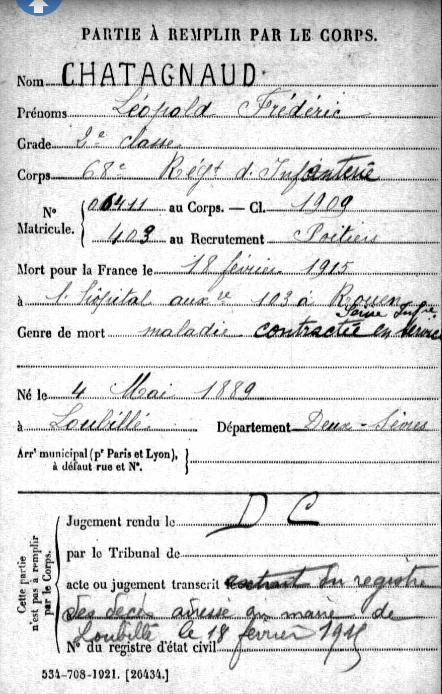 PARTIE À REMPLIR PAR LE CORPS.
Nom CHATAGNAUD
Prénoms Léopold Frédéric
Grade 2e classe
Corps 68e Régt d'Infanterie
No Matricule. { 06411 au Corps. — Cl. 1909
403 au Recrutement Poitiers
Mort pour la France le 18 février 1915
à l'hôpital auxre 103 à Rouen
Seine Infre
Genre de mort maladie contractée en service
Né le 4 Mai 1889
à Loubillé Département Deux-Sèvres
Arrt municipal (pr Paris et Lyon), à défaut rue et No. }
Cette partie n'est pas à remplir par le Corps.
Jugement rendu le D C
par le Tribunal de
acte ou jugement transcrit le extrait du registre
des décès adressé au maire de
Loubillé le 18 février 1915
No du registre d'état civil
534-708-1921. [26434.]